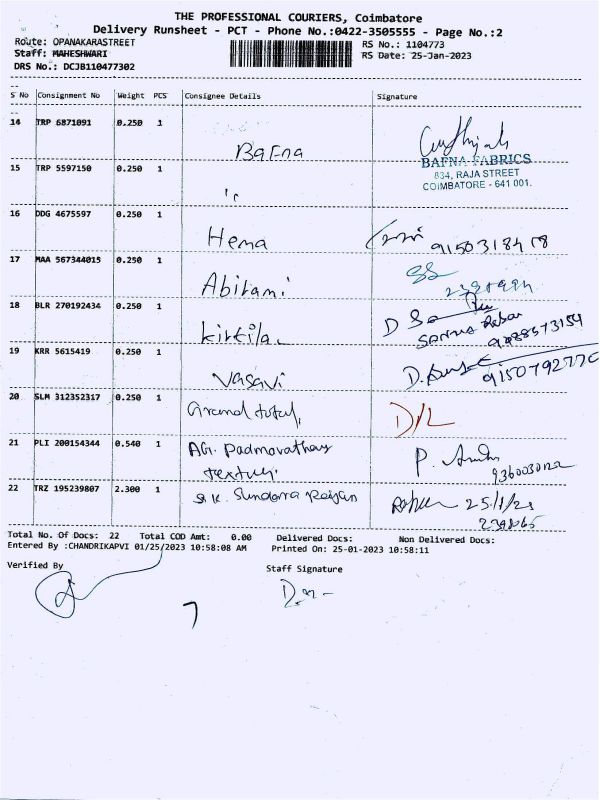 THE PROFESSIONAL COURIERS, Coimbatore
Delivery Runsheet - PCT - Phone No.:0422-3505555 - Page No.:2
Route: OPANAKARASTREET RS No.: 1104773
Staff: MAHESHWARI RS Date: 25-Jan-2023
DRS No.: DCJB110477302
S No Consignment No Weight PCS Consignee Details Signature
14 TRP 6871091 0.250 1 Bafna
BAFNA FABRICS
834, RAJA STREET
COIMBATORE - 641 001.
15 TRP 5597150 0.250 1
16 DDG 4675597 0.250 1 Hema 9150318418
17 MAA 567344015 0.250 1 Abirami
18 BLR 270192434 0.250 1
19 KRR 5615419 0.250 1 Vasavi
20 SLM 312352317 0.250 1 Grand total, D/L
21 PLI 200154344 0.540 1 AG. Padmavathay P.
22 TRZ 195239807 2.300 1 Sundara 25/1/23
Total No. Of Docs: 22 Total COD Amt: 0.00 Delivered Docs: Non Delivered Docs:
Entered By :CHANDRIKAPVI 01/25/2023 10:58:08 AM Printed On: 25-01-2023 10:58:11
Verified By Staff Signature
7